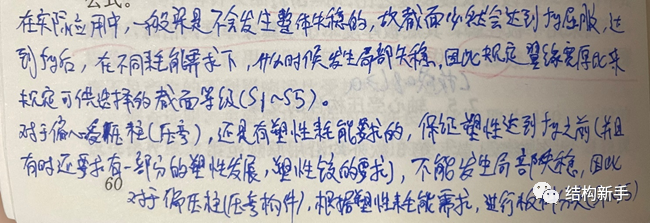 公式。
在实际应用中,一般梁是不会发生整体失稳的,故截面必然会达到fy屈服,达
到fy后,在不同耗能需求下,什么时候发生局部失稳,因此规定翼缘宽厚比来
规定可供选择的截面等级(S1~S5)。
对于偏心受压柱(压弯),还是有塑性耗能要求的,保证塑性达到fy之前(并且
有时还要求有一部分的塑性发展,塑性铰的要求),不能发生局部失稳,因此
60
对于偏压柱(压弯构件),根据塑性耗能需求,进行板件分
结构新手